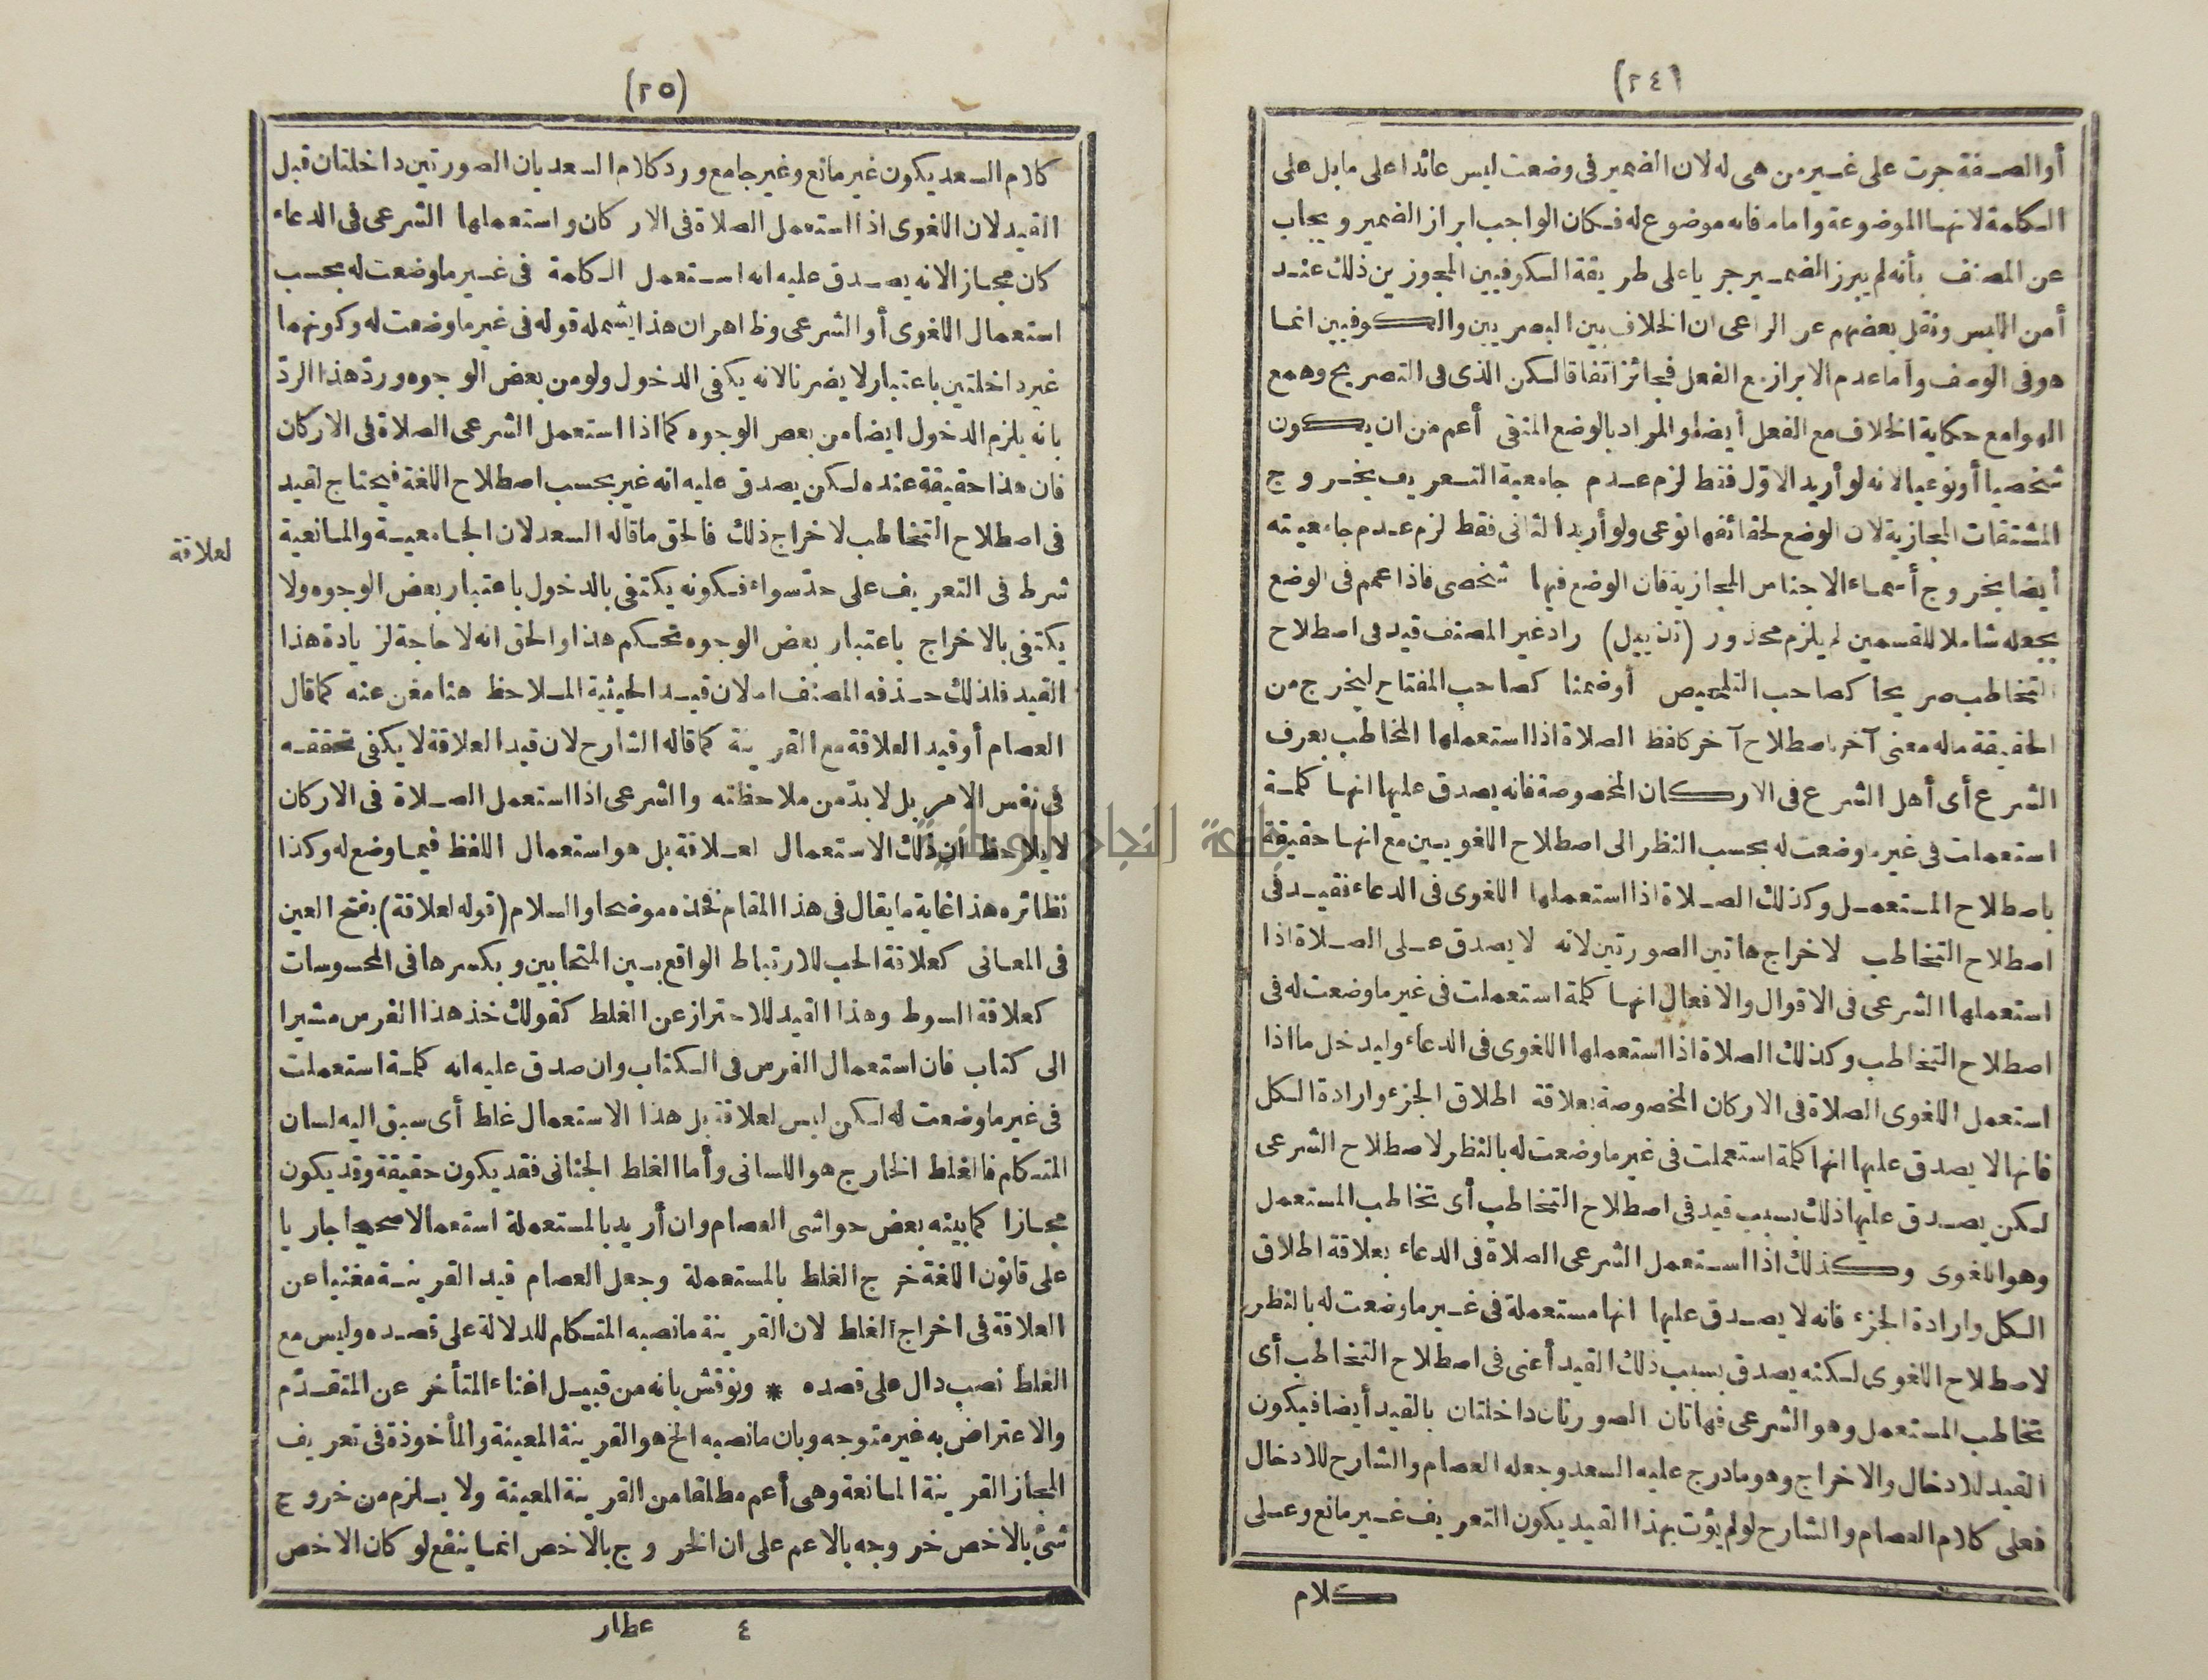 (٢٤)
أو الصفة جرت على غير من هى له لان الضمير فى وضعت ليس عائدا على ما بل على
الكلمة لانها الموضوعة واما ما فانه موضوع له فكان الواجب ابراز الضمير ويجاب
عن المصنف بأنه لم يبرز الضمير جريا على طريقة الكوفيين المجوزين ذلك عند
أمن اللبس ونقل بعضهم عن الراعى ان الخلاف بين البصريين والكوفيين انما
هو فى الوصف وأما عدم الابراز مع الفعل فجائز اتفاقا لكن الذى فى التصريح وهمع
الهوامع حكاية الخلاف مع الفعل أيضا والمراد بالوضع المنفى أعم من ان يكون
شخصيا أو نوعيا لانه لو أريد الاوّل فقط لزم عدم جامعية التعريف بخروج
المشتقات المجازية لان الوضع لحقائقها نوعى ولو أريد الثانى فقط لزم عدم جامعيته
أيضا بخروج أسماء الاجناس المجازية فان الوضع فيها شخصى فاذا عمم فى الوضع
بجعله شاملا للقسمين لم يلزم محذور (تذييل) زاد غير المصنف قيد فى اصطلاح
التخاطب صريحا كصاحب التلخيص أو ضمنا كصاحب المفتاح ليخرج من
الحقيقة ماله معنى آخر باصطلاح آخر كلفظ الصلاة اذا استعملها المخاطب بعرف
الشرع أى أهل الشرع فى الاركان المخصوصة فانه يصدق عليها انها كلمة
استعملت فى غير ما وضعت له بحسب النظر الى اصطلاح اللغويين مع انها حقيقة
باصطلاح المستعمل وكذلك الصلاة اذا استعملها اللغوى فى الدعاء نقيد فى
اصطلاح التخاطب لاخراج هاتين الصورتين لانه لا يصدق على الصلاة اذا
استعملها الشرعى فى الاقوال والافعال انها كلمة استعملت فى غير ما وضعت له فى
اصطلاح التخاطب وكذلك الصلاة اذا استعملها اللغوى فى الدعاء وليدخل ما اذا
استعمل اللغوى الصلاة فى الاركان المخصوصة بعلاقة اطلاق الجزء وارادة الكل
فانها لا يصدق عليها انها كلمة استعملت فى غير ما وضعت له بالنظر لاصطلاح الشرعى
لكن يصدق عليها ذلك بسبب قيد فى اصطلاح التخاطب أى تخاطب المستعمل
وهو اللغوى وكذلك اذا استعمل الشرعى الصلاة فى الدعاء بعلاقة اطلاق
الكل وارادة الجزء فانه لا يصدق عليها انها مستعملة فى غير ما وضعت له بالنظر
لاصطلاح اللغوى لكنه يصدق بسبب ذلك القيد أعنى فى اصطلاح التخاطب أى
تخاطب المستعمل وهو الشرعى فهاتان الصورتان داخلتان بالقيد أيضا فيكون
القيد للادخال والاخراج وهو ما درج عليه السعد وجعله العصام والشارح للادخال
فعلى كلام العصام والشارح لو لم يؤت بهذا القيد يكون التعريف غير مانع وعلى
كلام
(٢٥)
كلام السعد يكون غير مانع وغير جامع ورد كلام السعد بان الصورتين داخلتان قبل
القيد لان اللغوى اذا استعمل الصلاة فى الاركان واستعملها الشرعى فى الدعاء
كان مجازا لانه يصدق عليه انه استعمل الكلمة فى غير ما وضعت له بحسب
استعمال اللغوى أو الشرعى وظاهر ان هذا يشمله قوله فى غير ما وضعت له وكونهما
غير داخلتين باعتبار لا يضرنا لانه يكفى الدخول ولو من بعض الوجوه وردّ هذا الردّ
بانه يلزم الدخول ايضا من بعض الوجوه كما اذا استعمل الشرعى الصلاة فى الاركان
فان هذا حقيقة عنده لكن يصدق عليه انه غير بحسب اصطلاح اللغة فيحتاج لقيد
فى اصطلاح التخاطب لاخراج ذلك فالحق ما قاله السعد لان الجامعية والمانعية
شرط فى التعريف على حدّ سواء فكونه يكتفى بالدخول باعتبار بعض الوجوه ولا
يكتفى بالاخراج باعتبار بعض الوجوه تحكم هذا والحق انه لا حاجة لزيادة هذا
القيد فلذلك حذفه المصنف اما لان قيد الحيثية الملاحظ هنا مغن عنه كما قال
العصام أو قيد العلاقة مع القرينة كما قاله الشارح لان قيد العلاقة لا يكفى تحققه
فى نفس الامر بل لا بدّ من ملاحظته والشرعى اذا استعمل الصلاة فى الاركان
لا يلاحظ ان ذلك الاستعمال لعلاقة بل هو استعمال اللفظ فيما وضع له وكذا
نظائره هذا غاية ما يقال فى هذا المقام فخذه موضحا والسلام (قوله لعلاقة) بفتح العين
فى المعانى كعلاقة الحب للارتباط الواقع بين المتحابين وبكسرها فى المحسوسات
كعلاقة السوط وهذا القيد للاحتراز عن الغلط كقولك خذ هذا الفرس مشيرا
الى كتاب فان استعمال الفرس فى الكتاب وان صدق عليه انه كلمة استعملت
فى غير ما وضعت له لكن ليس لعلاقة بل هذا الاستعمال غلط أى سبق اليه لسان
المتكلم فالغلط الخارج هو اللسانى وأما الغلط الجنانى فقد يكون حقيقة وقد يكون
مجازا كما بينه بعض حواشى العصام وان أريد بالمستعملة استعمالا صحيحا جاريا
على قانون اللغة خرج الغلط بالمستعملة وجعل العصام قيد القرينة مغنيا عن
العلاقة فى اخراج الغلط لان القرينة ما نصبه المتكلم للدلالة على قصده وليس مع
الغلط نصب دال على قصده * ونوقش بانه من قبيل اغناء المتأخر عن المتقدّم
والاعتراض به غير متوجه وبان ما نصبه الخ هو القرينة المعينة والمأخوذة فى تعريف
المجاز القرينة المانعة وهى أعم مطلقا من القرينة المعينة ولا يلزم من خروج
شئ بالاخص خروجه بالاعم على ان الخروج بالاخص انما ينفع لو كان الاخص
لعلاقة
٤ عطار
جامعة النجاح الوطنية